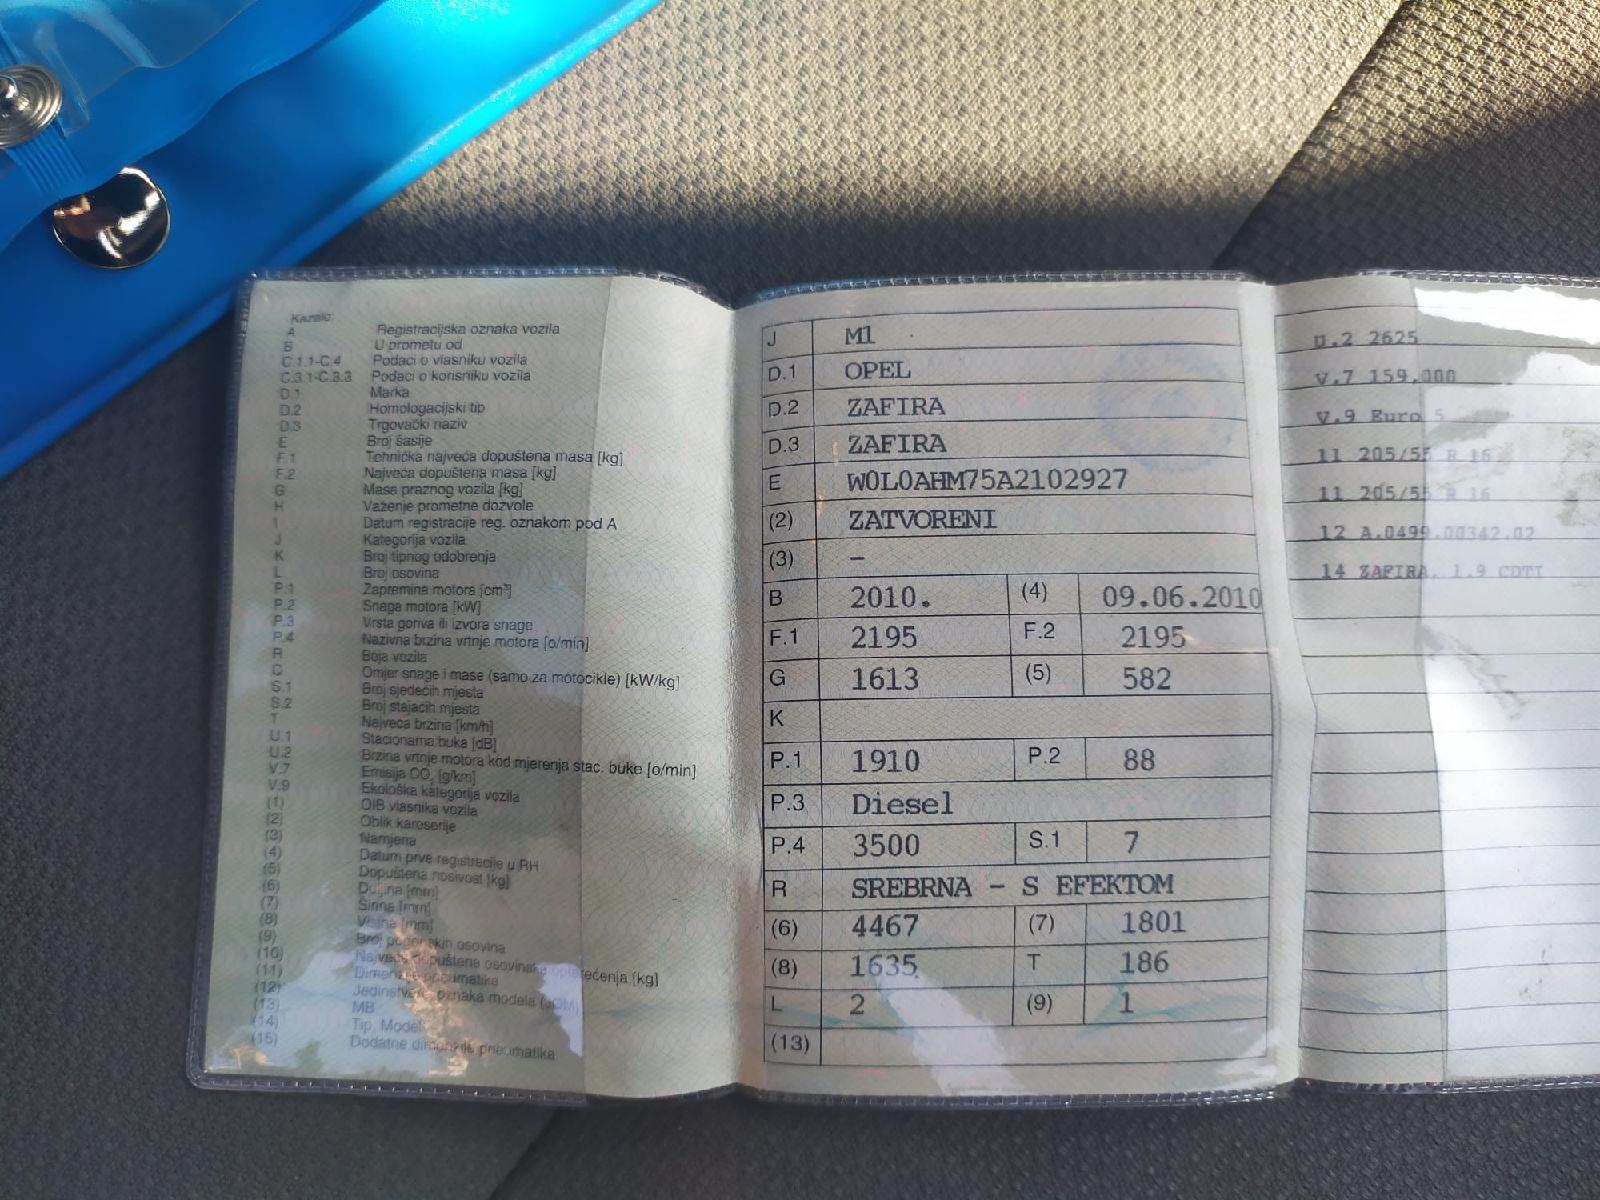 Kazalo:
A Registracijska oznaka vozila
B U prometu od
C.1.1-C.4 Podaci o vlasniku vozila
C.3.1-C.3.3 Podaci o korisniku vozila
D.1 Marka
D.2 Homologacijski tip
D.3 Trgovački naziv
E Broj šasije
F.1 Tehnička najveća dopuštena masa [kg]
F.2 Najveća dopuštena masa [kg]
G Masa praznog vozila [kg]
H Važenje prometne dozvole
I Datum registracije reg. oznakom pod A
J Kategorija vozila
K Broj tipnog odobrenja
L Broj osovina
P.1 Zapremina motora [cm³]
P.2 Snaga motora [kW]
P.3 Vrsta goriva ili izvora snage
P.4 Nazivna brzina vrtnje motora [o/min]
R Boja vozila
Q Omjer snage i mase (samo za motocikle) [kW/kg]
S.1 Broj sjedećih mjesta
S.2 Broj stajaćih mjesta
T Najveća brzina [km/h]
U.1 Stacionarna buka [dB]
U.2 Brzina vrtnje motora kod mjerenja stac. buke [o/min]
V.7 Emisija CO₂ [g/km]
V.9 Ekološka kategorija vozila
(1) OIB vlasnika vozila
(2) Oblik karoserije
(3) Namjena
(4) Datum prve registracije u RH
(5) Dopuštena nosivost [kg]
(6) Duljina [mm]
(7) Širina [mm]
(8) Visina [mm]
(9) Broj pogonskih osovina
(10) Najveća dopuštena osovinska opterećenja [kg]
(11) Dimenzije pneumatika
(12) Jedinstvena oznaka modela (JOM)
(13) MB
(14) Tip, Model
(15) Dodatne dimenzije pneumatika
J M1
D.1 OPEL
D.2 ZAFIRA
D.3 ZAFIRA
E W0L0AHM75A2102927
(2) ZATVORENI
(3) –
B 2010. (4) 09.06.2010
F.1 2195 F.2 2195
G 1613 (5) 582
K
P.1 1910 P.2 88
P.3 Diesel
P.4 3500 S.1 7
R SREBRNA - S EFEKTOM
(6) 4467 (7) 1801
(8) 1635 T 186
L 2 (9) 1
(13)
U.2 2625
V.7 159,000
V.9 Euro 5
11 205/55 R 16
11 205/55 R 16
12 A.0499.00342.02
14 ZAFIRA, 1.9 CDTI